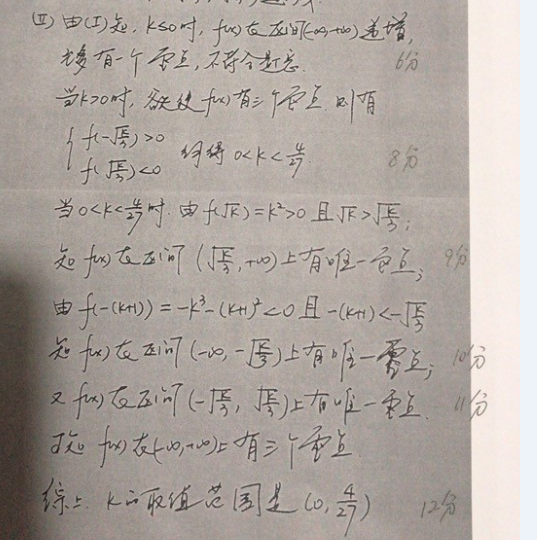 (Ⅱ) 由(Ⅰ)知, k≤0时, f(x)在区间(-∞,+∞)递增,
至多有一个零点, 不符合题意. 6分
当k>0时, 欲使f(x)有三个零点, 则有
{ f(-√(k/3))>0 f(√(k/3))<0 解得 0<k<4/27 8分
当0<k<4/27时, 由f(√k)=k²>0 且√k>√(k/3);
知f(x)在区间(√(k/3),+∞)上有唯一零点; 9分
由f(-(k+1))=-k³-(k+1)²<0 且-(k+1)<-√(k/3)
知f(x)在区间(-∞,-√(k/3))上有唯一零点; 10分
又f(x)在区间(-√(k/3),√(k/3))上有唯一零点. 11分
故知f(x)在(-∞,+∞)上有三个零点.
综上. k的取值范围是(0,4/27) 12分